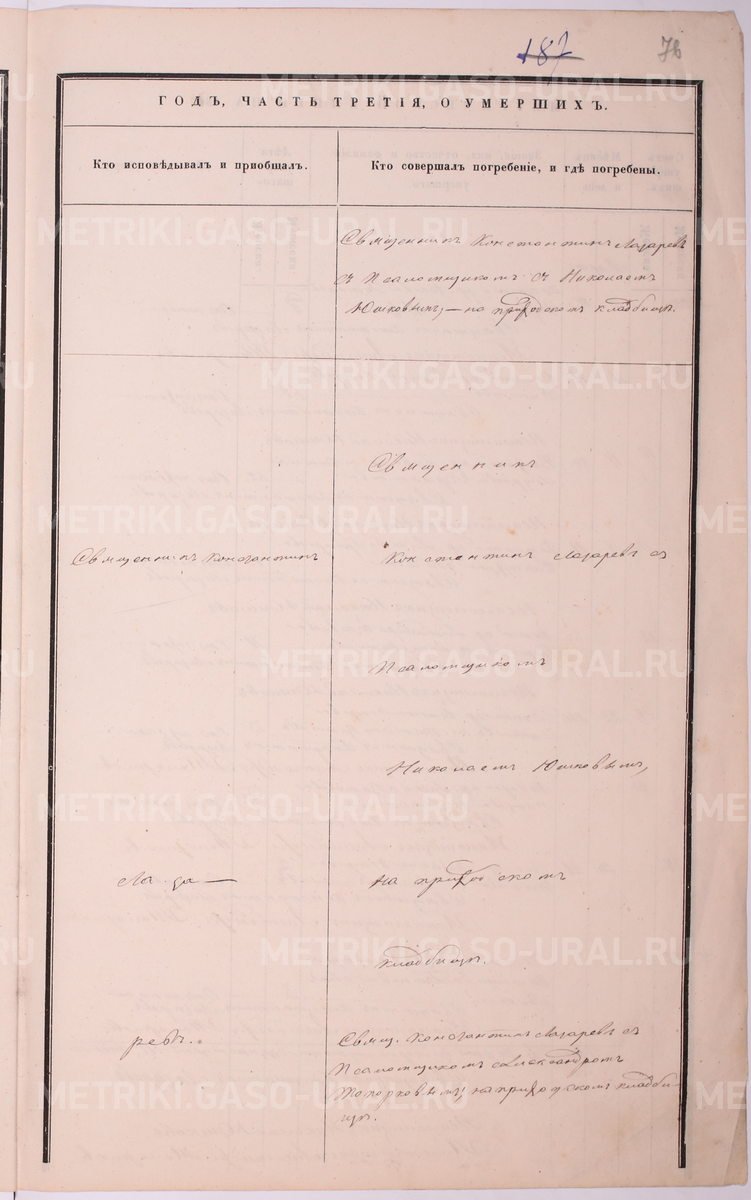 187
76
ГОДЪ, ЧАСТЬ ТРЕТІЯ, О УМЕРШИХЪ.
Кто исповѣдывалъ и приобщалъ.
Кто совершалъ погребеніе, и гдѣ погребены.
Священникъ Константинъ Лазаревъ
съ Псаломщикомъ Николаемъ
Юшковымъ, — на приходскомъ кладбищѣ.
Священникъ
Священникъ Константинъ
Константинъ Лазаревъ съ
Псаломщикомъ
Николаемъ Юшковымъ,
Ла за —
на приходскомъ
кладбищѣ.
ревъ.
Свящ. Константинъ Лазаревъ съ
Псаломщикомъ Александромъ
Топорковымъ, на приходскомъ кладби-
щѣ.
METRIKI.GASO-URAL.RU